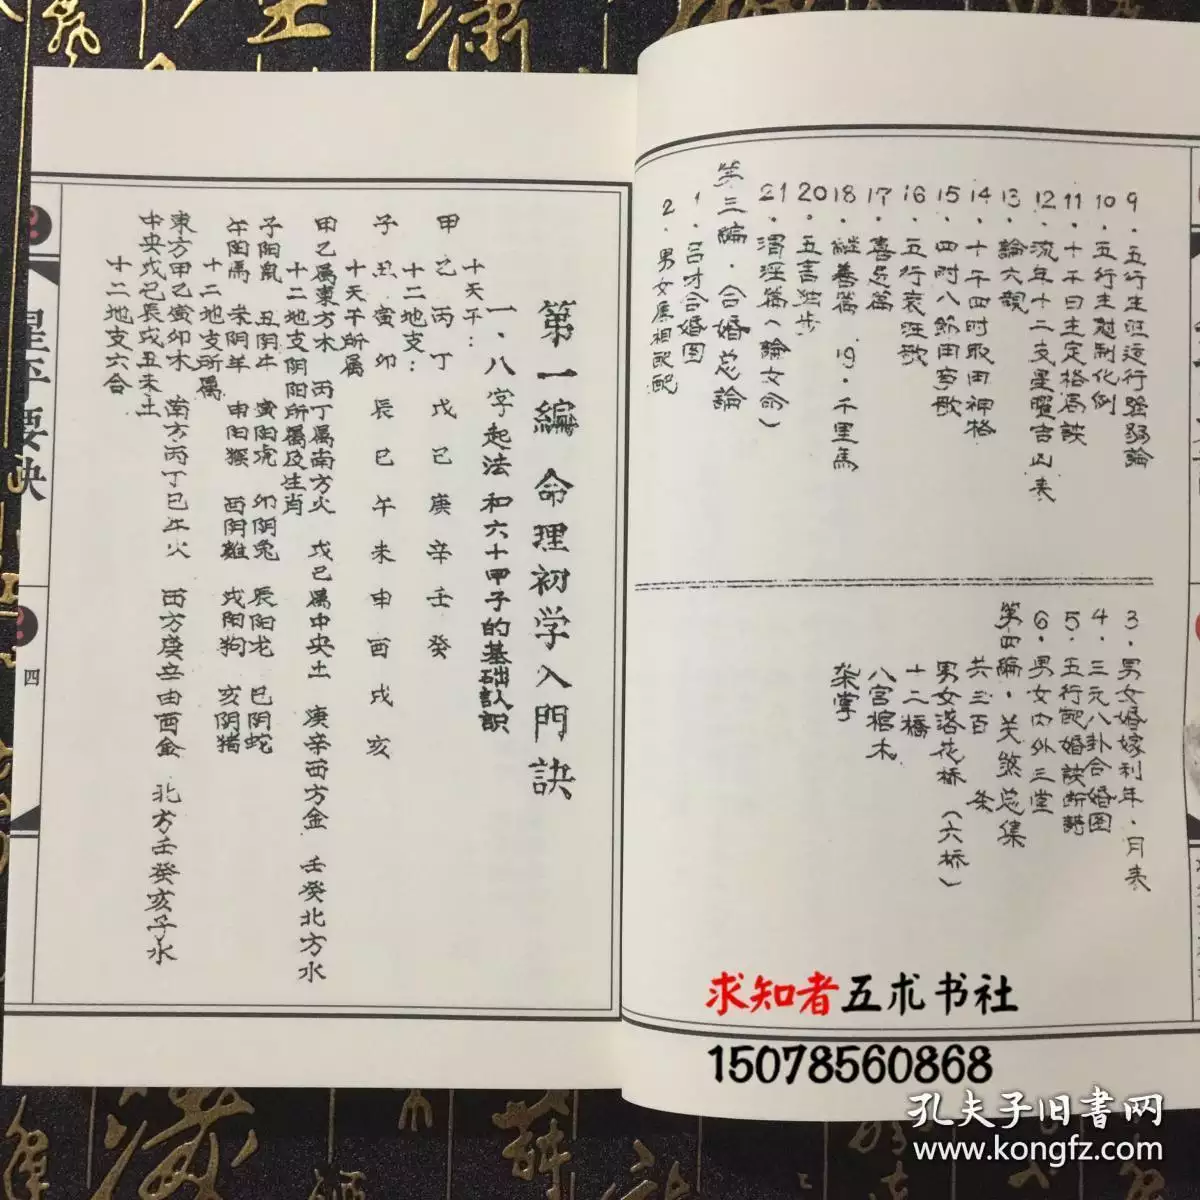 9．五行生旺运行强弱論
10．五行生尅制化例
11．十干日主定格局訣
12．流年十二支星曜吉凶表
13．論六親
14．十干四时取用神格
15．四时八節用事歌
16．五行衰旺歌
17．喜忌篇
18．继善篇 19．千里馬
20．五言独步
21．渭泾篇（論女命）
第三編．合婚总論
1．吕才合婚图
2．男女属相配
3．男女婚嫁利年．月表
4．三元八卦合婚图
5．五行配婚訣断諸
6．男女内外三堂
第四編．关煞总集
共三百 条
男女落花桥（六桥）
十二橋
八宫棺木
架掌
第一編 命理初学入門訣
一．八字起法和六十甲子的基础认识
十天干：
甲乙丙丁戊己庚辛壬癸
十二地支：
子丑寅卯辰巳午未申酉戌亥
十天干所属
甲乙属東方木 丙丁属南方火 戊己属中央土 庚辛西方金 壬癸北方水
十二地支阴阳所属及生肖
子阳鼠 丑阴牛 寅阳虎 卯阴兔 辰阳龙 巳阴蛇
午阳馬 未阴羊 申阳猴 酉阴雞 戌阳狗 亥阴猪
十二地支所属
東方甲乙寅卯木 南方丙丁巳午火 西方庚辛申酉金 北方壬癸亥子水
中央戊己辰戌丑未土
十二地支六合
星平要訣
四
求知者五术书社
15078560868
孔夫子旧書网
www.kongfz.com